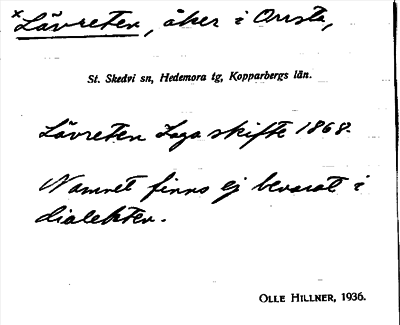 ×Lävreten, åker i Orrsta,
St. Skedvi sn, Hedemora tg, Kopparbergs län.
Lävreten Laga skifte 1868.
Namnet finns ej bevarat i
dialekten.
OLLE HILLNER, 1936.